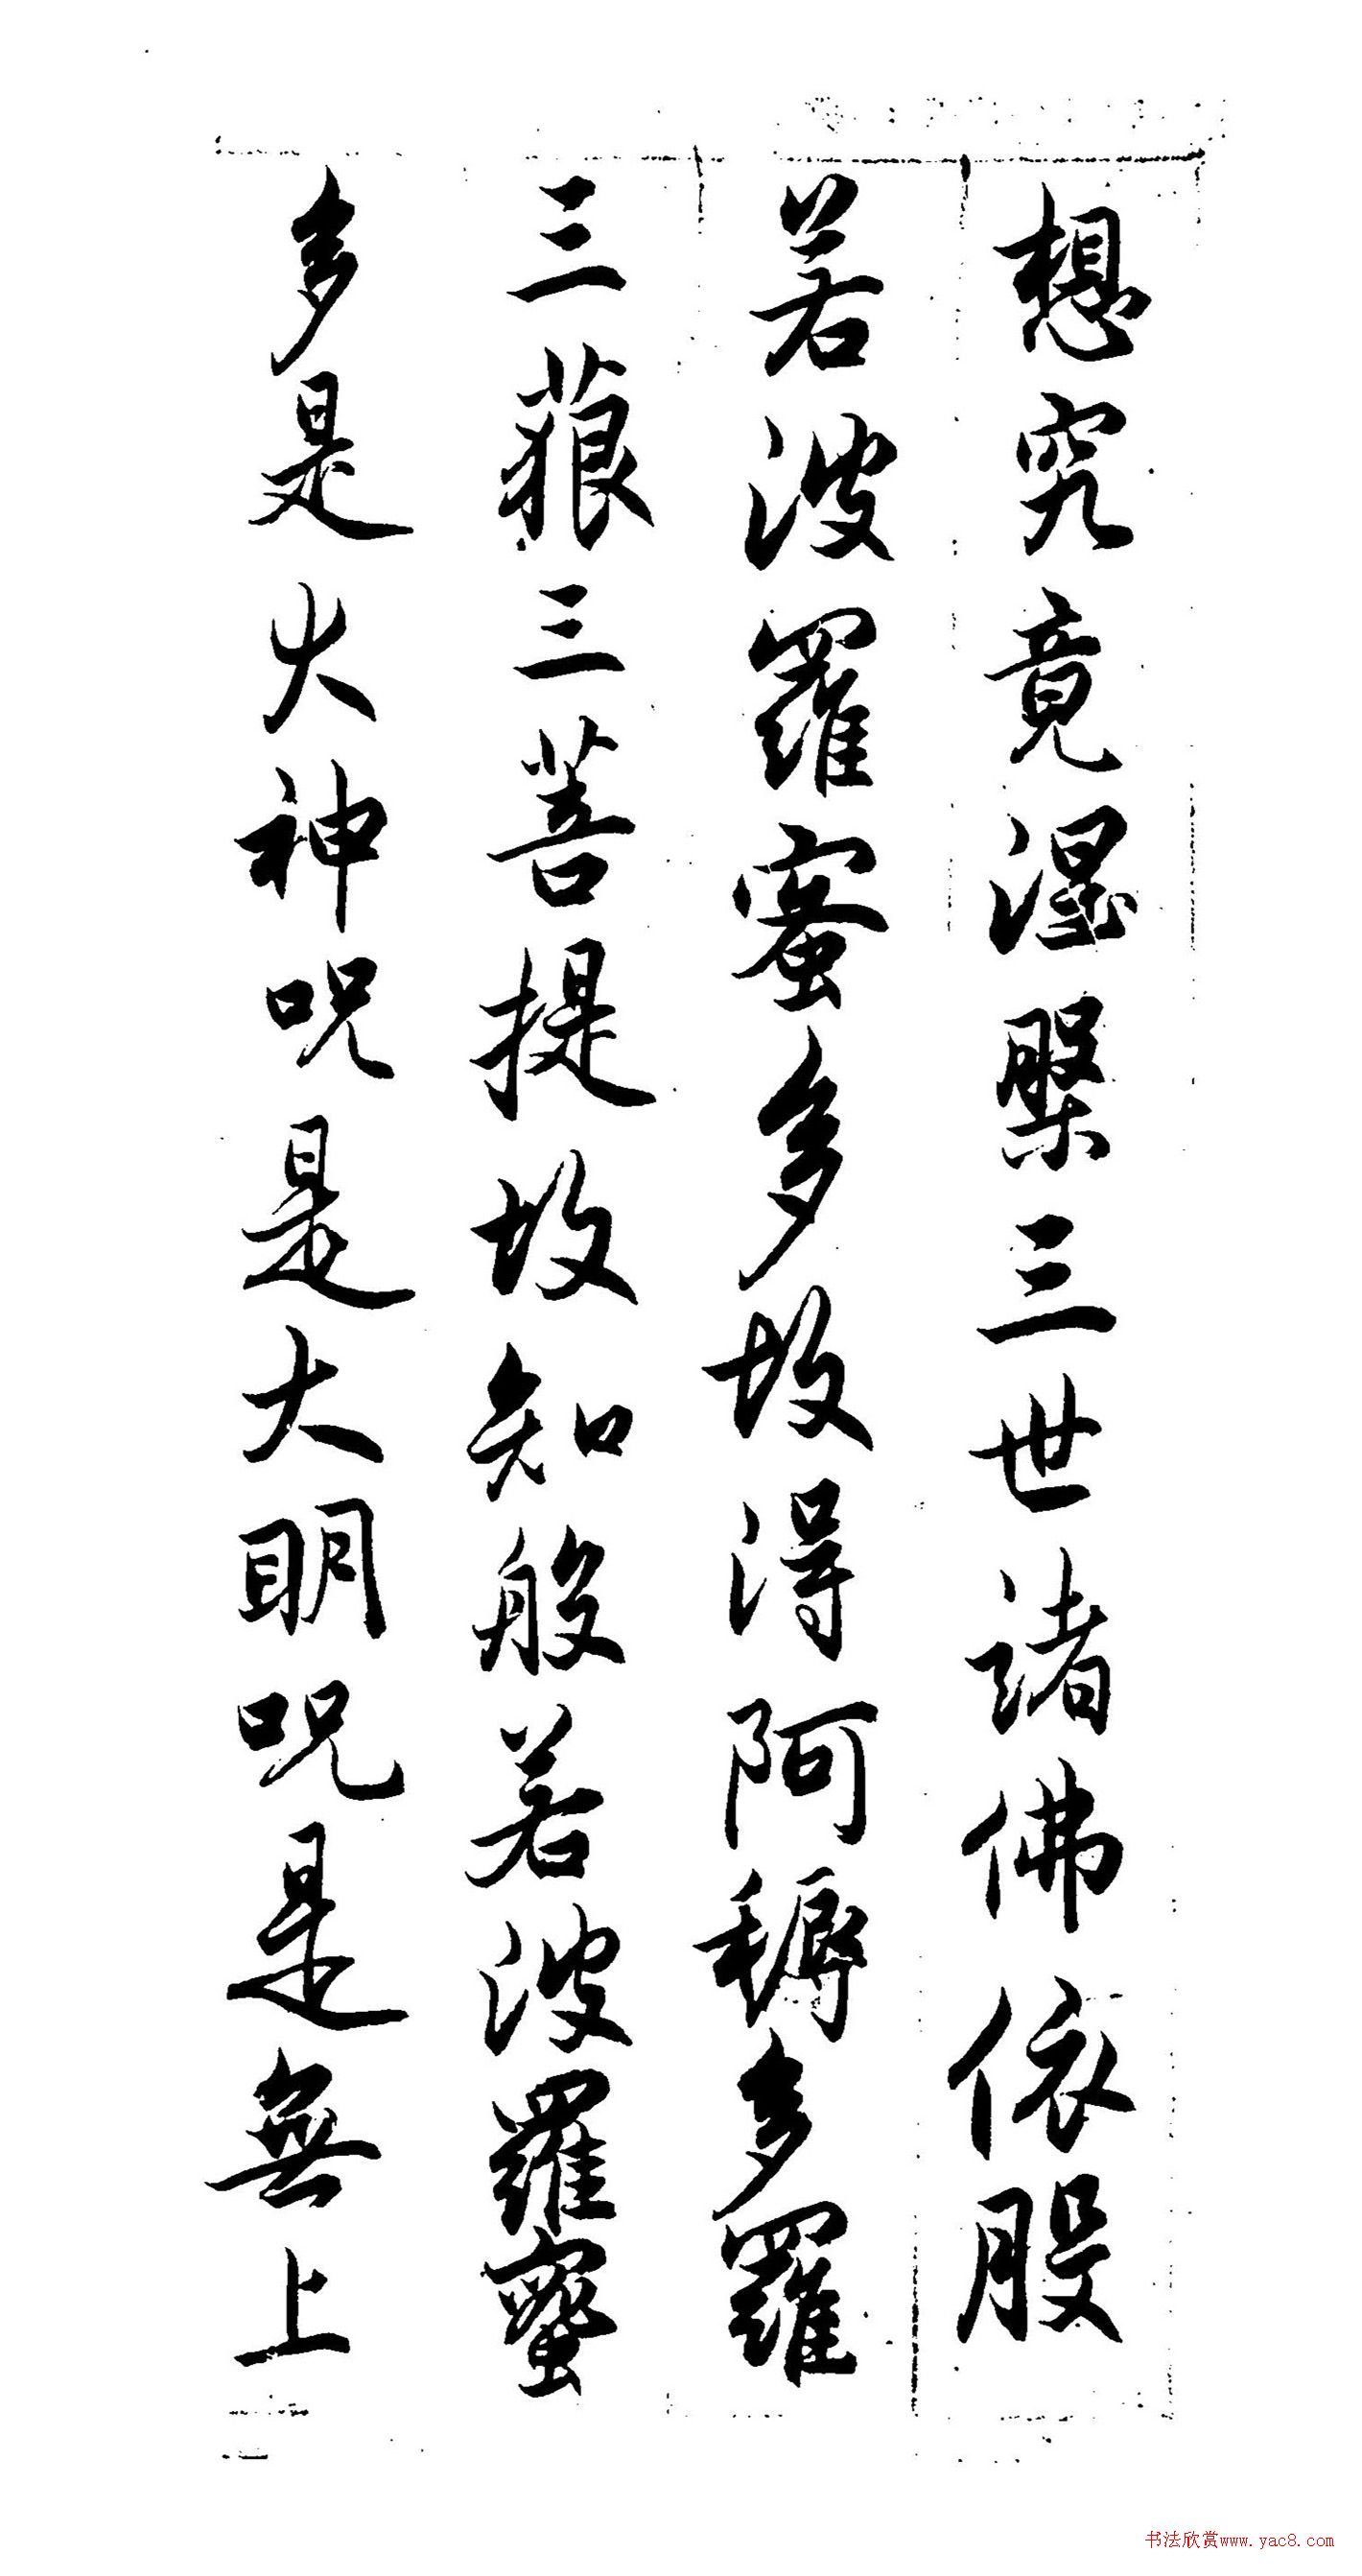 想究竟涅槃三世諸佛依般
若波羅蜜多故得阿耨多羅
三藐三菩提故知般若波羅蜜
多是大神呪是大明呪是無上
书法欣赏www.yac8.com